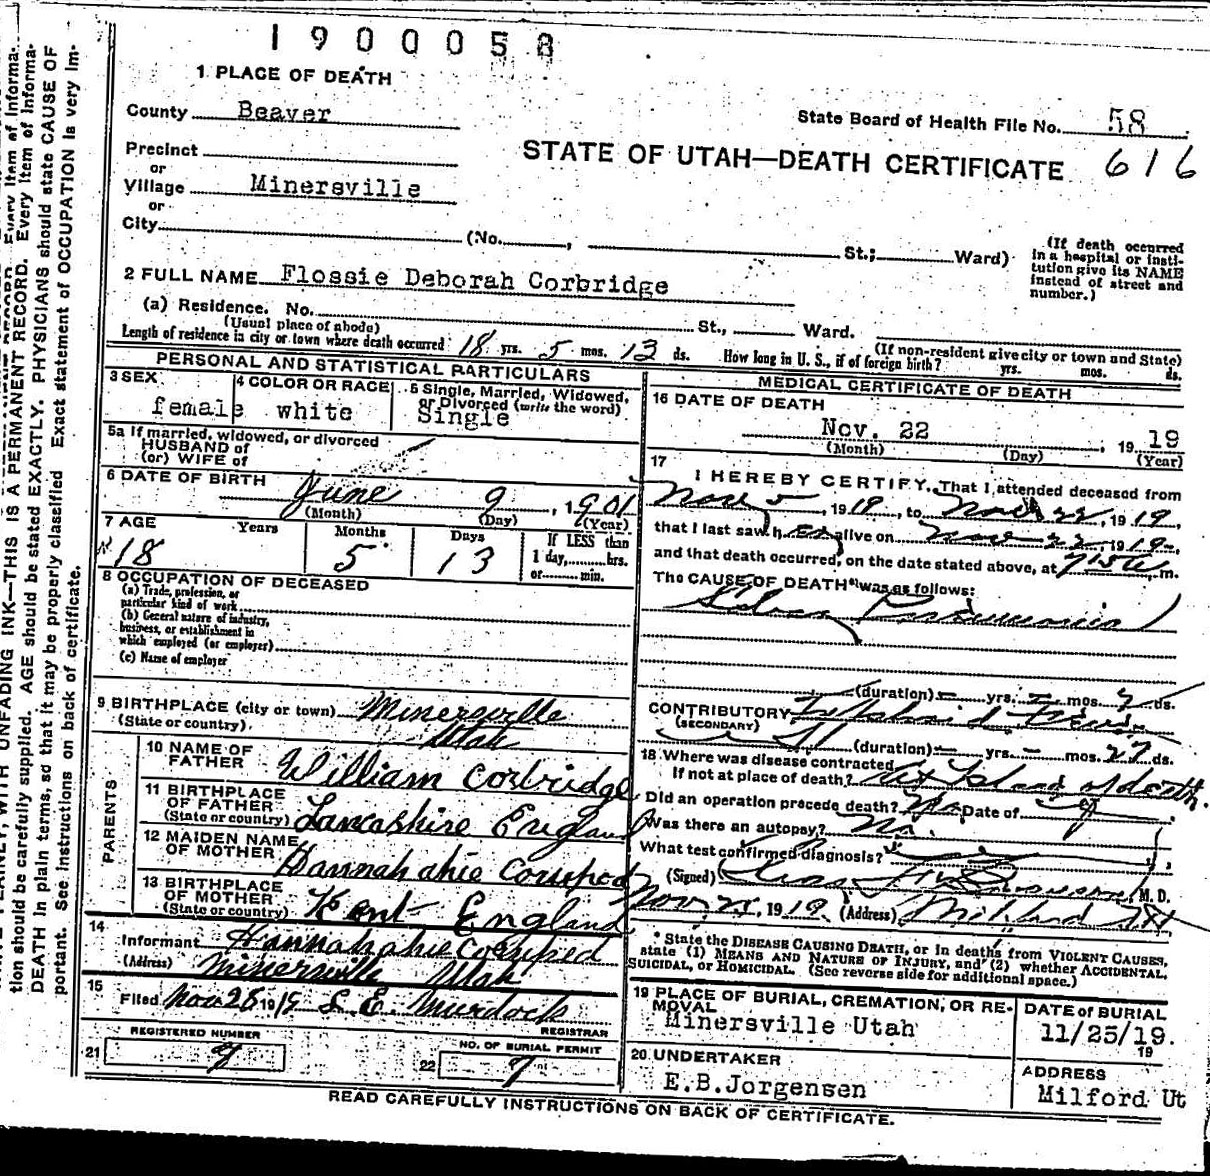 1900058
1 PLACE OF DEATH
County Beaver
State Board of Health File No. 58
Precinct
or
STATE OF UTAH—DEATH CERTIFICATE 616
Village Minersville
or
City (No. , St.; Ward)
(If death occurred in a hospital or institution give its NAME instead of street and number.)
2 FULL NAME Flossie Deborah Corbridge
(a) Residence. No. St., Ward.
(Usual place of abode) (If non-resident give city or town and State)
Length of residence in city or town where death occurred 18 yrs. 5 mos. 13 ds. How long in U. S., if of foreign birth? yrs. mos. ds.
PERSONAL AND STATISTICAL PARTICULARS
3 SEX
female
4 COLOR OR RACE
white
5 Single, Married, Widowed, or Divorced (write the word)
Single
5a If married, widowed, or divorced
HUSBAND of
(or) WIFE of
6 DATE OF BIRTH
June 9, 1901
(Month) (Day) (Year)
7 AGE Years Months Days
18 5 13
If LESS than
1 day, hrs.
or min.
8 OCCUPATION OF DECEASED
(a) Trade, profession, or
particular kind of work
(b) General nature of industry,
business, or establishment in
which employed (or employer)
(c) Name of employer
9 BIRTHPLACE (city or town) Minersville
(State or country) Utah
PARENTS
10 NAME OF
FATHER William Corbridge
11 BIRTHPLACE
OF FATHER
(State or country) Lancashire England
12 MAIDEN NAME
OF MOTHER Hannah
13 BIRTHPLACE
OF MOTHER
(State or country) Kent England
14
Informant Hannah
(Address) Minersville Utah
15
Filed Nov 25 1919 L. E. Murdock
REGISTRAR
REGISTERED NUMBER
21 9
NO. OF BURIAL PERMIT
22 7
MEDICAL CERTIFICATE OF DEATH
16 DATE OF DEATH
Nov. 22, 1919
(Month) (Day) (Year)
17
I HEREBY CERTIFY, That I attended deceased from
Nov 5, 1919, to Nov 22, 1919,
that I last saw her alive on Nov 22, 1919,
and that death occurred, on the date stated above, at m.
The CAUSE OF DEATH* was as follows:
Pneumonia
(duration) yrs. mos. 7 ds.
CONTRIBUTORY Typhoid Fever
(SECONDARY)
(duration) yrs. mos. 27 ds.
18 Where was disease contracted
If not at place of death? At Place of death.
Did an operation precede death? No. Date of
Was there an autopsy? No.
What test confirmed diagnosis?
(Signed) M. D.
Nov 25, 1919 (Address) Milford Ut
* State the DISEASE CAUSING DEATH, or in deaths from VIOLENT CAUSES,
state (1) MEANS AND NATURE OF INJURY, and (2) whether ACCIDENTAL,
SUICIDAL, or HOMICIDAL. (See reverse side for additional space.)
19 PLACE OF BURIAL, CREMATION, OR REMOVAL
Minersville Utah
DATE of BURIAL
11/25/19.
19
20 UNDERTAKER
E.B.Jorgensen
ADDRESS
Milford Ut
READ CAREFULLY INSTRUCTIONS ON BACK OF CERTIFICATE.
PLAINLY, WITH UNFADING INK—THIS IS A PERMANENT RECORD. Every item of informa-
tion should be carefully supplied. AGE should be stated EXACTLY. PHYSICIANS should state CAUSE OF
DEATH in plain terms, so that it may be properly classified. Exact statement of OCCUPATION is very im-
portant. See instructions on back of certificate.